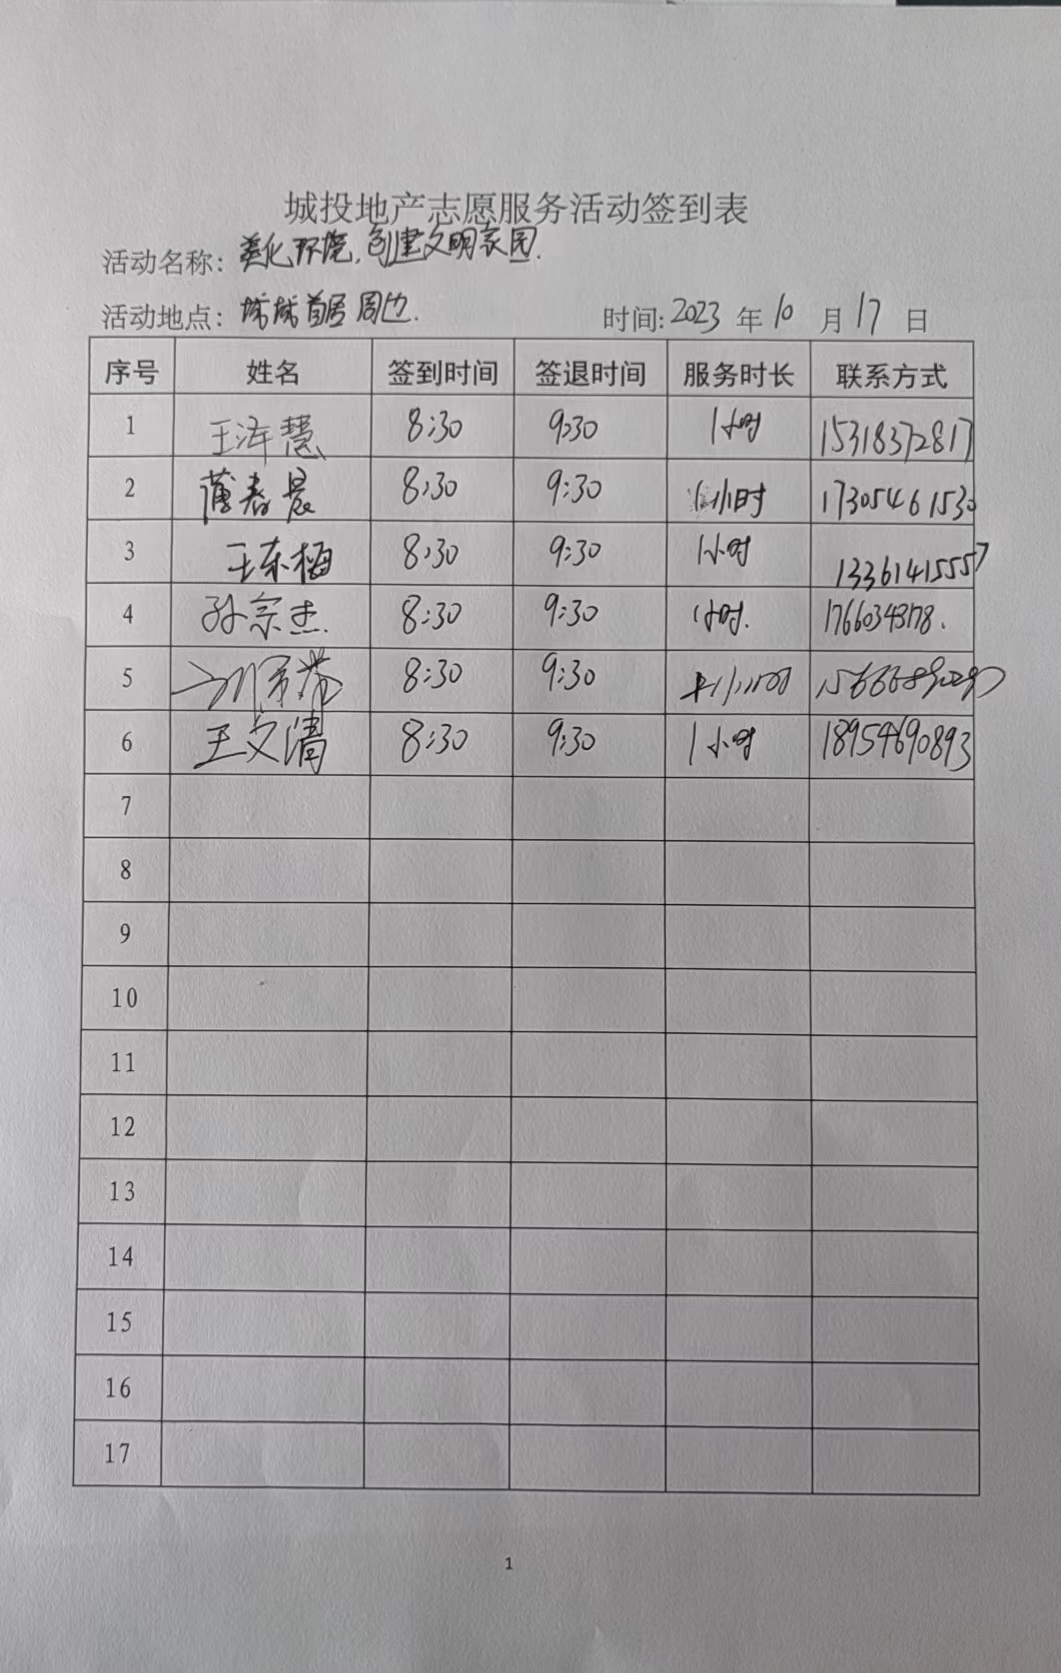 城投地产志愿服务活动签到表
活动名称: 美化环境,创建文明家园.
活动地点: 首居周边. 时间:2023 年 10 月 17 日
序号 姓名 签到时间 签退时间 服务时长 联系方式
1 王泽慧 8:30 9:30 1小时 15318372817
2 薄春晨 8:30 9:30 1小时 17305461530
3 王东梅 8:30 9:30 1小时 13361415557
4 孙宗杰 8:30 9:30 1小时.
5 8:30 9:30
6 王文清 8:30 9:30 1小时 18954690893
7
8
9
10
11
12
13
14
15
16
17
1